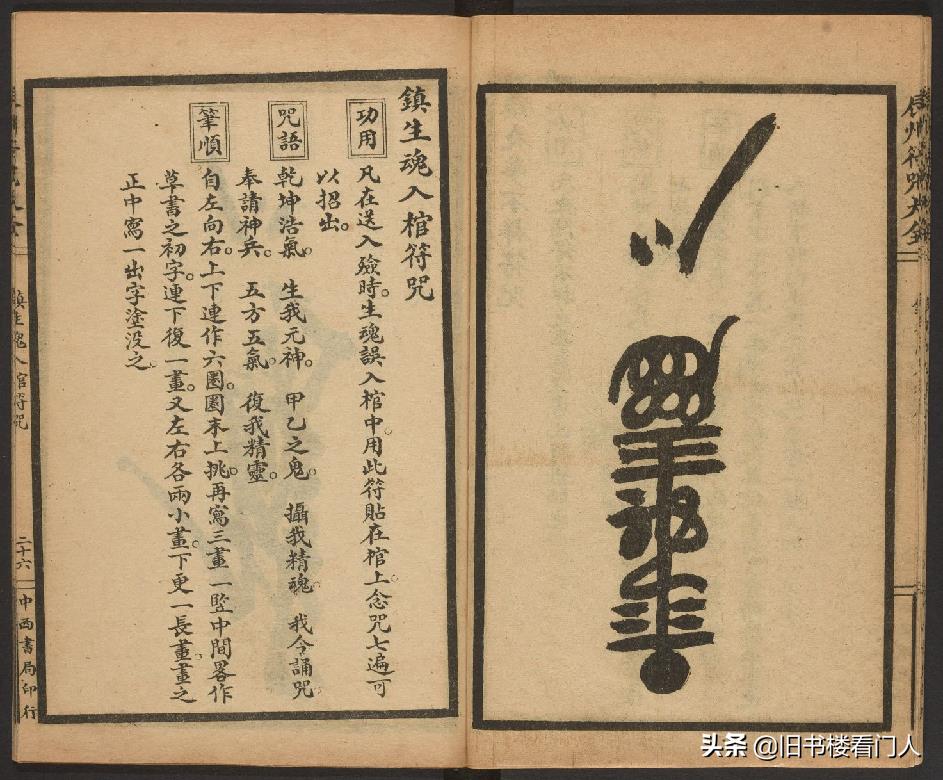 鎮生魂入棺符咒
功用
凡在送入殮時。生魂誤入棺中。用此符貼在棺上。念咒七遍。可
以招出。
咒語
乾坤浩氣。 生我元神。 甲乙之鬼。 攝我精魂。 我今誦咒。
奉請神兵。 五方五氣。 復我精靈。
筆順
自左向右。上下連作六圈。圈末上挑。再寫三畫一豎。中間畧作
草書之初字。連下復一畫。又左右各兩小畫。下更一長畫。畫之
正中寫一出字塗沒之。
鎮生魂入棺符咒
二十六
中西書局印行
頭条 @旧书楼看门人